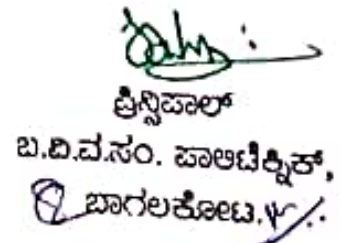 ಪ್ರಿನ್ಸಿಪಾಲ್
ಬ.ವಿ.ವ.ಸಂ. ಪಾಲಿಟೆಕ್ನಿಕ್,
ಬಾಗಲಕೋಟ.